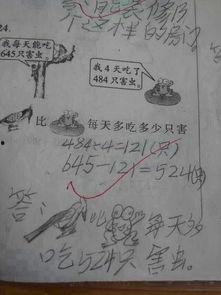 这样的房
24.
我每天能吃
645只害虫。
我4天吃了
484只害虫。
比 每天多吃多少只害
484÷4=121(只)
645-121=524(只)
答:
比 每天多
吃524只害虫。